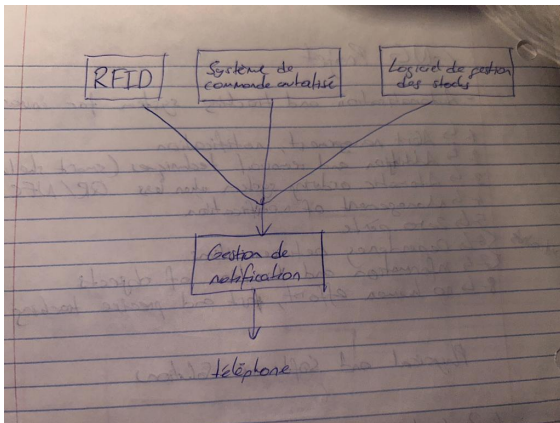 RFID
Système de
commande
Logiciel de gestion
des stocks
Gestion de
notification
téléphone